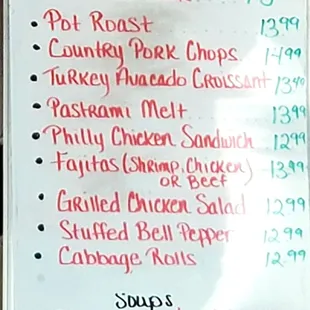 • Pot Roast 13.99
• Country Pork Chops 14.99
• Turkey Avacado Croissant
• Pastrami Melt 13.99
• Philly Chicken Sandwich 12.99
• Fajitas (Shrimp, Chicken) 13.99
or Beef
• Grilled Chicken Salad 12.99
• Stuffed Bell Pepper 12.99
• Cabbage Rolls 12.99
Soups